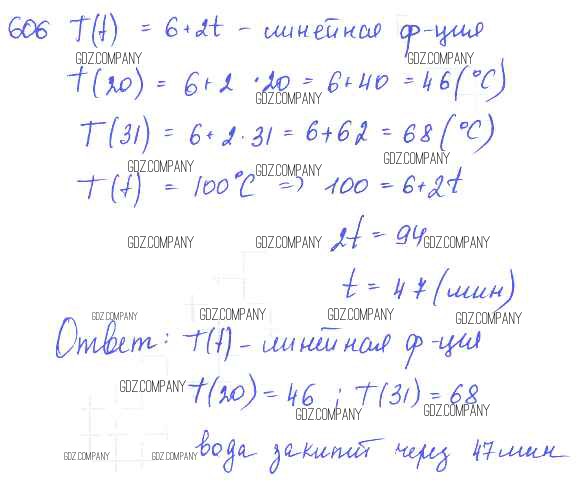 606 T(t) = 6+2t - линейная ф-ция
GDZ.COMPANY GDZ.COMPANY
T(20) = 6+2 · 20 = 6+40 = 46 (°C)
GDZ.COMPANY
T(31) = 6+2·31 = 6+62 = 68 (°C)
GDZ.COMPANY GDZ.COMPANY GDZ.COMPANY
T(t) = 100°C => 100 = 6+2t
GDZ.COMPANY GDZ.COMPANY 2t = 94 GDZ.COMPANY
t = 47 (мин)
GDZ.COMPANY GDZ.COMPANY GDZ.COMPANY GDZ.COMPANY
Ответ: T(t) - линейная ф-ция
GDZ.COMPANY T(20) = 46 ; T(31) = 68
GDZ.COMPANY GDZ.COMPANY
вода закипит через 47 мин
GDZ.COMPANY GDZ.COMPANY GDZ.COMPANY GDZ.COMPANY